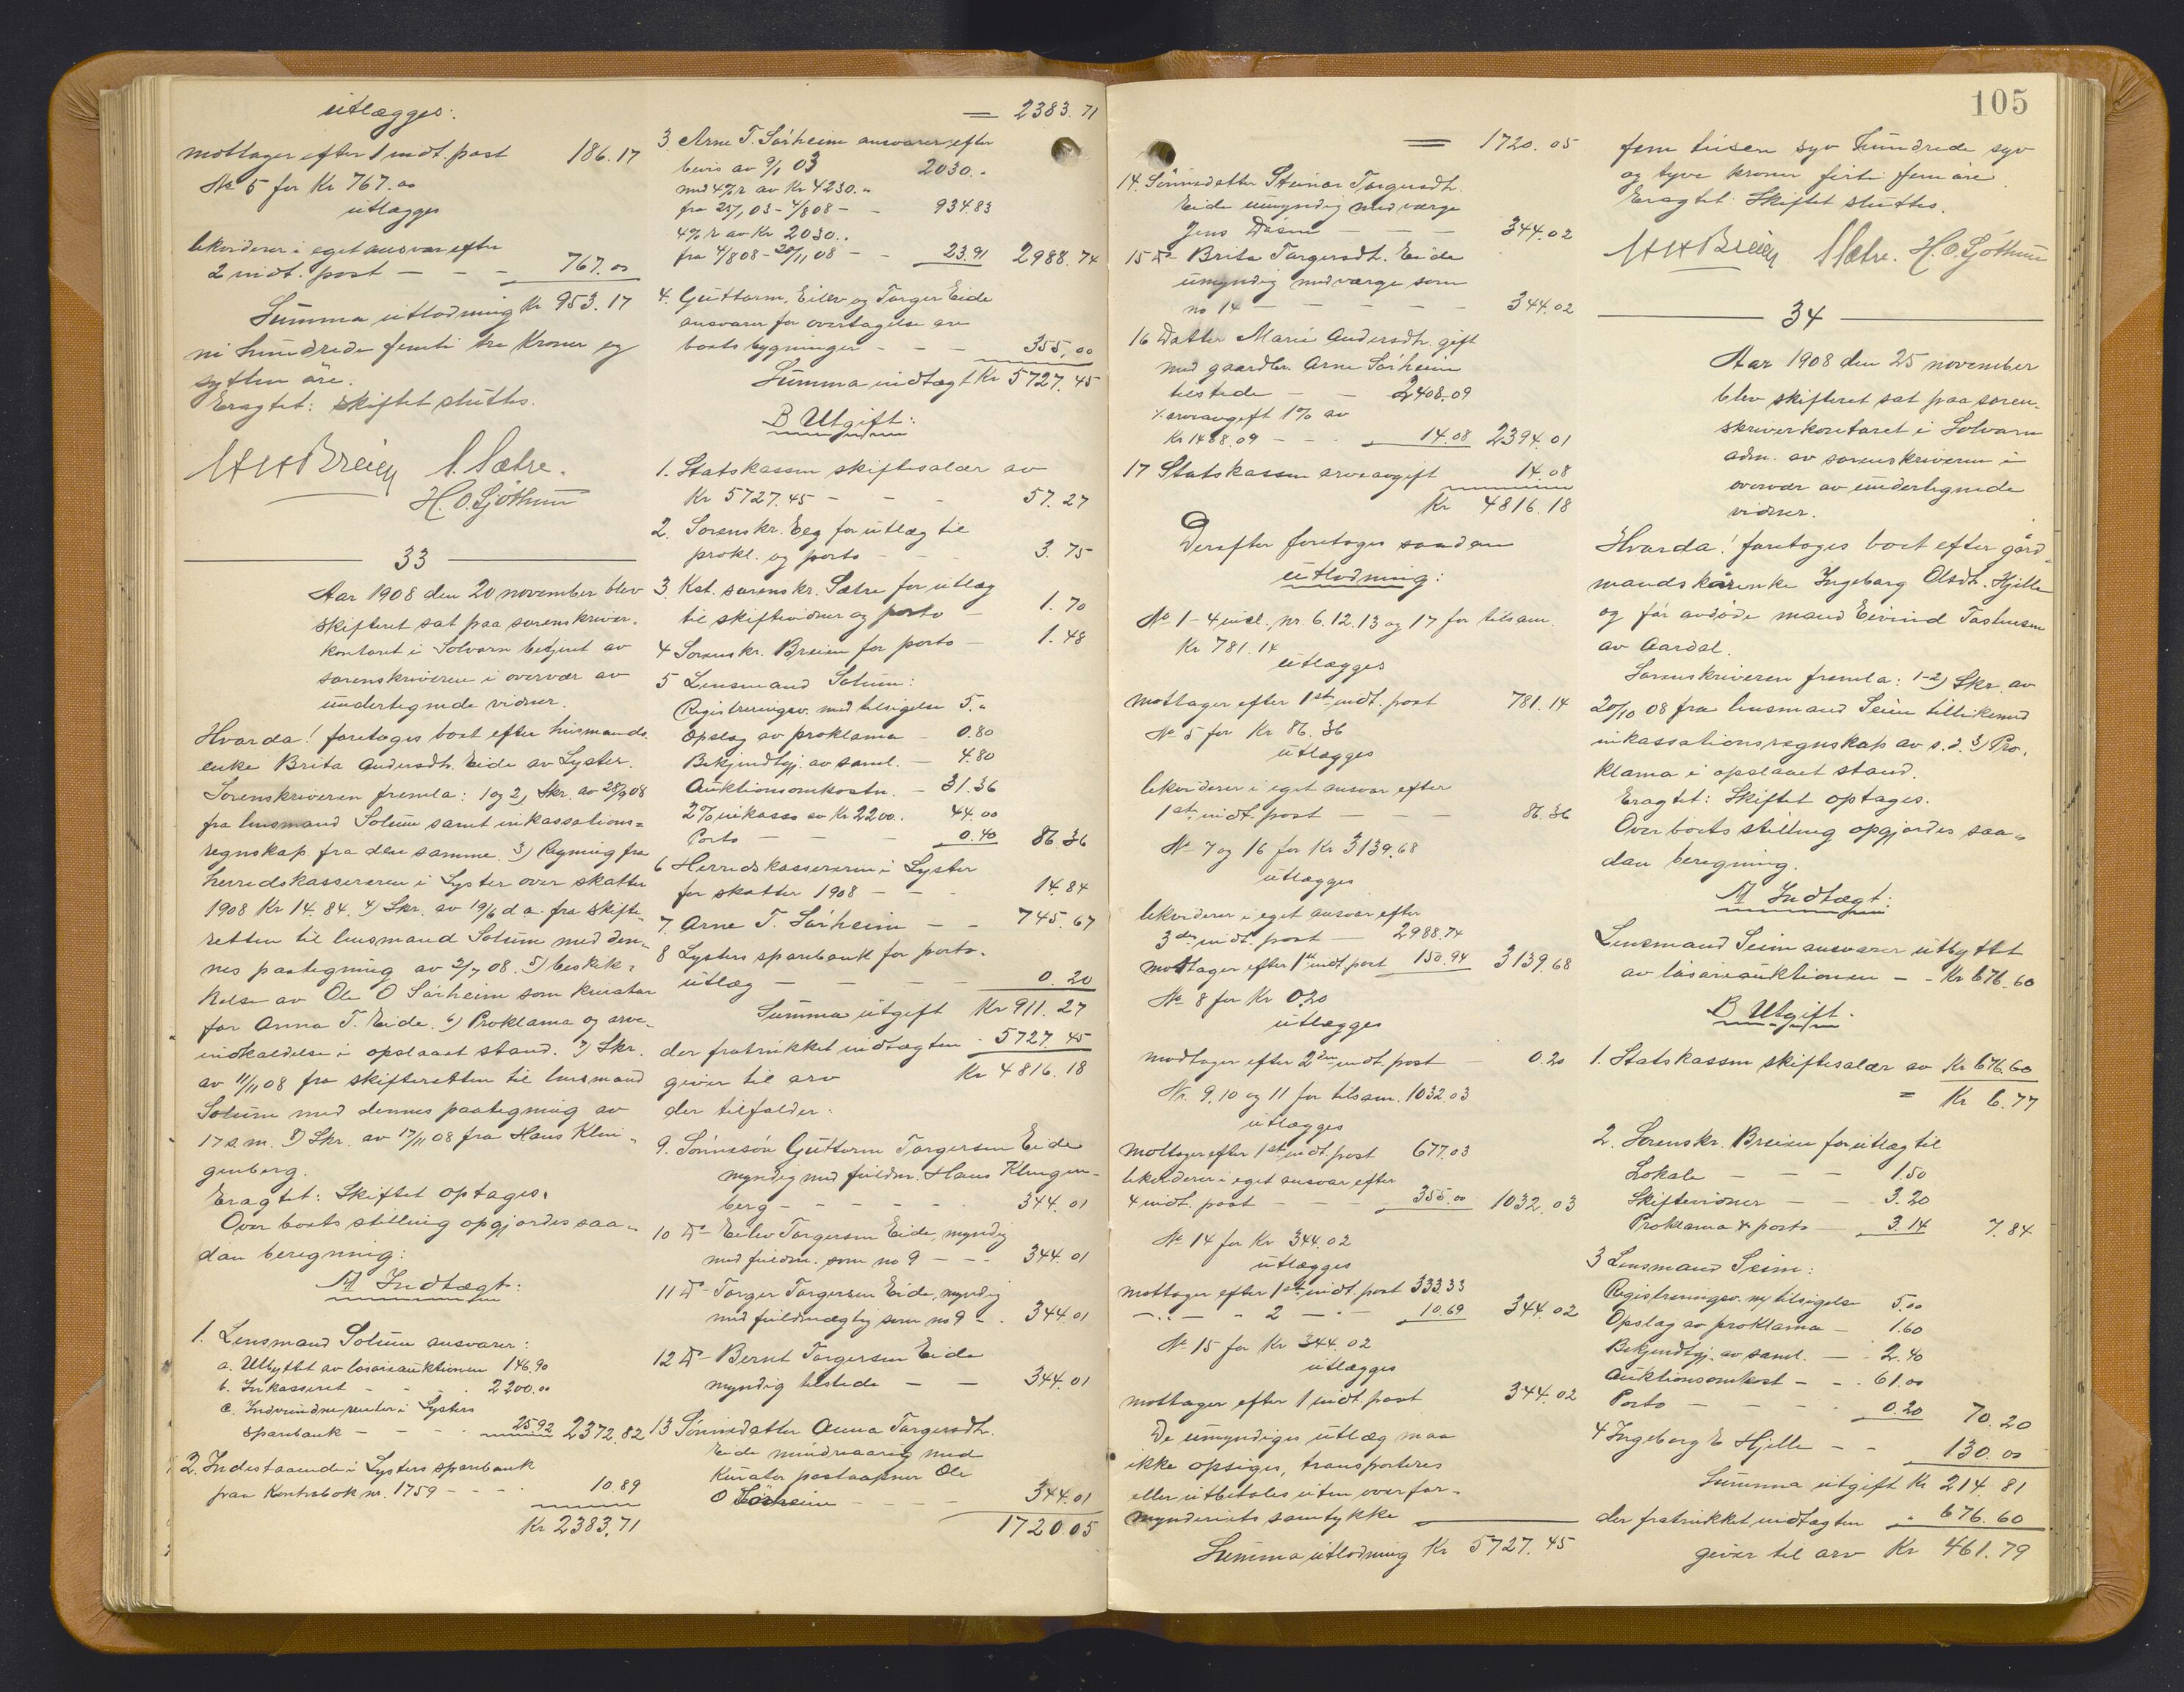 utlægges:
mottager efter 1 indt. post 186.17
No 5 for Kr 767.00
utlægges
likviderer i eget ansvar efter
2 indt. post — — — 767.00
Summa utlodning Kr 953.17
ni hundrede femti tre Kroner og
sytten øre.
Eragtet: Skiftet sluttes.
H H Breien S. Sætre.
H. O. Gjøthun
33
Aar 1908 den 20 november blev
skifteret sat paa sorenskriver-
kontoret i Solvorn betjent av
sorenskriveren i overvær av
undertegnede vidner.
Hvorda! foretoges boet efter husmands-
enke Brita Andersdtr. Eide av Lyster.
Sorenskriveren fremla: 1 og 2, Skr. av 28/9 08
fra lensmand Solum samt inkassations-
regnskap fra den samme. 3) Regning fra
herredskassereren i Lyster over skatter
1908 Kr 14.84. 4) Skr. av 19/6 d.a. fra skifte-
retten til lensmand Solum med den-
nes paategning av 2/7 08. 5) beskik-
kelse av Ole O Sørheim som kurator
for Anna T. Eide. 6) Proklama og arve-
indkaldelse i opslaaet stand. 7) Skr.
av 11/11 08 fra skifteretten til lensmand
Solum med dennes paategning av
17 s.m. 8) Skr. av 17/11 08 fra Hans Klin-
genberg.
Eragtet: Skiftet optages.
Over boets stilling opgjordes saa-
dan beregning:
A Indtægt:
1. Lensmand Solum ansvarer:
a. Utbyttet av løsøreauktionen 146.90
b. Inkasseret - - - 2200.00
c. Indvundne renter i Lysters
sparebank - - - - 25.92 2372.82
2. Indestaaende i Lysters sparebank
paa Kontrabok nr. 1759 - - - 10.89
Kr 2383.71
= 2383.71
3 Arne T. Sørheim ansvarer efter
bevis av 9/1 03 2030.-
med 4% r av Kr 4230.-
fra 25/1 03 - 4/8 08 - - 934.83
4% r av Kr 2030..
fra 4/8 08 - 20/11 08 - - 23.91 2988.74
4. Guttorm, Eilev og Torger Eide
ansvarer for overtagelse av
boets bygninger - - - 355.00
Summa indtægt Kr 5727.45
B Utgift:
1. Statskassen skiftesalær av
Kr 5727.45 - - - 57.27
2. Sorenskr. Eeg for utlæg til
prokl. og porto - - - 3.75
3. Kst. sorenskr. Sætre for utlæg
til skiftevidner og porto - 1.70
4 Sorenskr. Breien for porto - 1.48
5 Lensmand Solum:
Registreringsv. med tilsigelse 5.-
Opslag av proklama - 0.80
Bekjendtgj. av saml. - 4.80
Auktionsomkostn. - 31.36
2% inkasso av Kr 2200.. 44.00
Porto — — — 0.40 86.36
6 Herredskassereren i Lyster
for skatter 1908 - - - 14.84
7. Arne T. Sørheim - - 745.67
8 Lysters sparebank for porto-
utlæg — — — 0.20
Summa utgift Kr 911.27
der fratrukket indtægten - 5727.45
giver til arv Kr 4816.18
der tilfalder:
9. Sønnesøn Guttorm Torgersen Eide
myndig med fuldm. Hans Klingen-
berg - - - - - 344.01
10 Do- Eilev Torgersen Eide, myndig
med fuldm. som no 9 - - - 344.01
11 Do- Torger Torgersen Eide, myndig
med fuldmægtig som no 9 - . 344.01
12 Do- Bernt Torgersen Eide
myndig tilstede — — 344.01
13 Sønnedatter Anna Torgersdtr.
Eide mindreaarig med
Kurator postaapner Ole
O Sørheim - - - - 344.01
1720.05
105
= 1720.05
14. Sønnedatter Steinar Torgersdtr.
Eide umyndig med værge
Jens Døsen — — — 344.02
15 Do- Brita Torgersdtr. Eide
umyndig med værge som
no 14 — — — — 344.02
16 Datter Marie Andersdtr. gift
med gaardbr. Arne Sørheim
tilstede — — 2408.09
% arveavgift 1% av
Kr 1488.09 - - . 14.08 2394.01
17 Statskassen arveavgift 14.08
Kr 4816.18
Derefter foretoges saadan
utlodning:
No 1-4 incl., nr. 6. 12. 13 og 17 for tilsam.
Kr 781.14
utlægges
mottager efter 1ste indt. post 781.14
No 5 for Kr 86.36
utlægges
likviderer i eget ansvar efter
1ste indt. post — — — 86.36
No 7 og 16 for Kr 3139.68
utlægges
likviderer i eget ansvar efter
3die indt. post — 2988.74
mottager efter 1ste indt. post 150.94 3139.68
No 8 for Kr 0.20
utlægges
modtager efter 2den indt. post - 0.20
Nr. 9, 10 og 11 for tilsam. 1032.03
utlægges
mottager efter 1ste indt. post 677.03
likviderer i eget ansvar efter
4 indt. post - - - 355.00 1032.03
No 14 for Kr 344.02
utlægges
mottager efter 1ste indt. post 333.33
-..- - 2 -.- 10.69 344.02
No 15 for Kr 344.02
utlægges
mottager efter 1 indt. post 344.02
De umyndiges utlæg maa
ikke opsiges, transporteres
eller utbetales uten overfor-
mynderiets samtykke
Summa utlodning Kr 5727.45
fem tusen syv hundrede syv
og tyve kroner førti fem øre.
Eragtet Skiftet sluttes.
H H Breien S Sætre. H. O. Gjøthun
34
Aar 1908 den 25 november
blev skifteret sat paa soren-
skriverkontoret i Solvorn
adm. av sorenskriveren i
overvær av undertegnede
vidner.
Hvorda! foretoges boet efter gård-
mandskårenke Ingeborg Olsdtr. Hjelle
og før avdøde mand Eivind Tostensen
av Aardal.
Sorenskriveren fremla: 1-2) Skr. av
20/10 08 fra lensmand Seim tillikemed
inkassationsregnskap av s.d. 3) Pro-
klama i opslaaet stand.
Eragtet: Skiftet optages.
Over boets stilling opgjordes saa-
dan beregning.
A Indtægt:
Lensmand Seim ansvarer utbyttet
av løsøreauktionen - - Kr 676.60
B Utgift.
1. Statskassen skiftesalær av Kr 676.60
= Kr 6.77
2. Sorenskr. Breien for utlæg til
Lokale — — 1.50
Skiftevidner — — 3.20
Proklama & porto — 3.14 7.84
3 Lensmand Seim:
Registreringsv. m/ tilsigelse 5.00
Opslag av proklama — 1.60
Bekjendtgj. av saml. — - 2.40
Auktionsomkost - - . 61.00
Porto — — — - 0.20 70.20
4 Ingeborg E Hjelle - - 130.00
Summa utgift Kr 214.81
der fratrukket indtægten - 676.60
giver til arv Kr 461.79